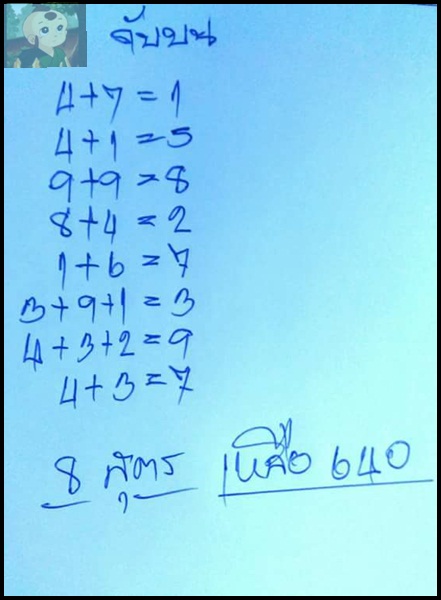 ดับบน
4+7=1
4+1=5
9+9=8
8+4=2
1+6=7
3+9+1=3
4+3+2=9
4+3=7
8 สุตร เหลือ 640